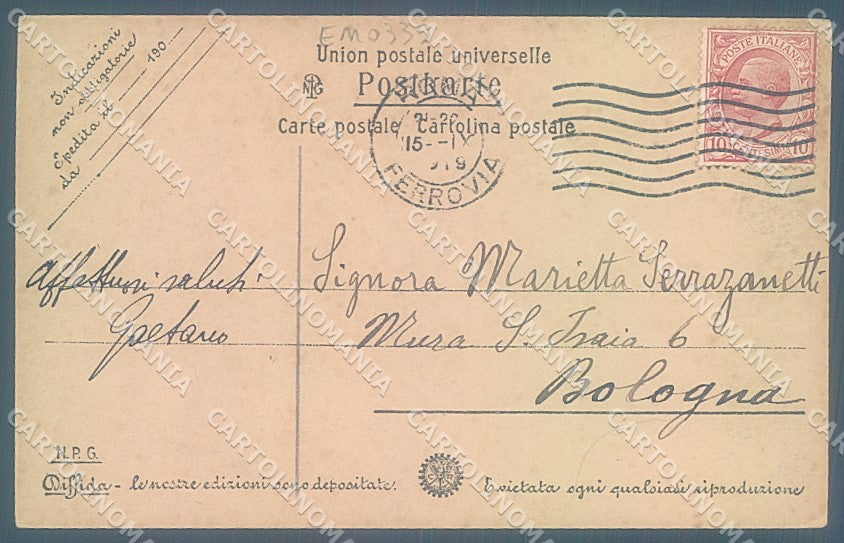 EM033
Indicazioni
non obbligatorie
Spedita il 190
da
Union postale universelle
NPG Postkarte
Carte postale Cartolina postale
21-22
15--IX
919
FERROVIA
POSTE ITALIANE
10 CENTESIMI 10
Affettuosi saluti
Gaetano
Signora Marietta Serrazanetti
Mura S. Isaia 6
Bologna
N.P.G.
Diffida - le nostre edizioni sono depositate.
E vietata ogni qualsiasi riproduzione
CARTOLINOMANIA